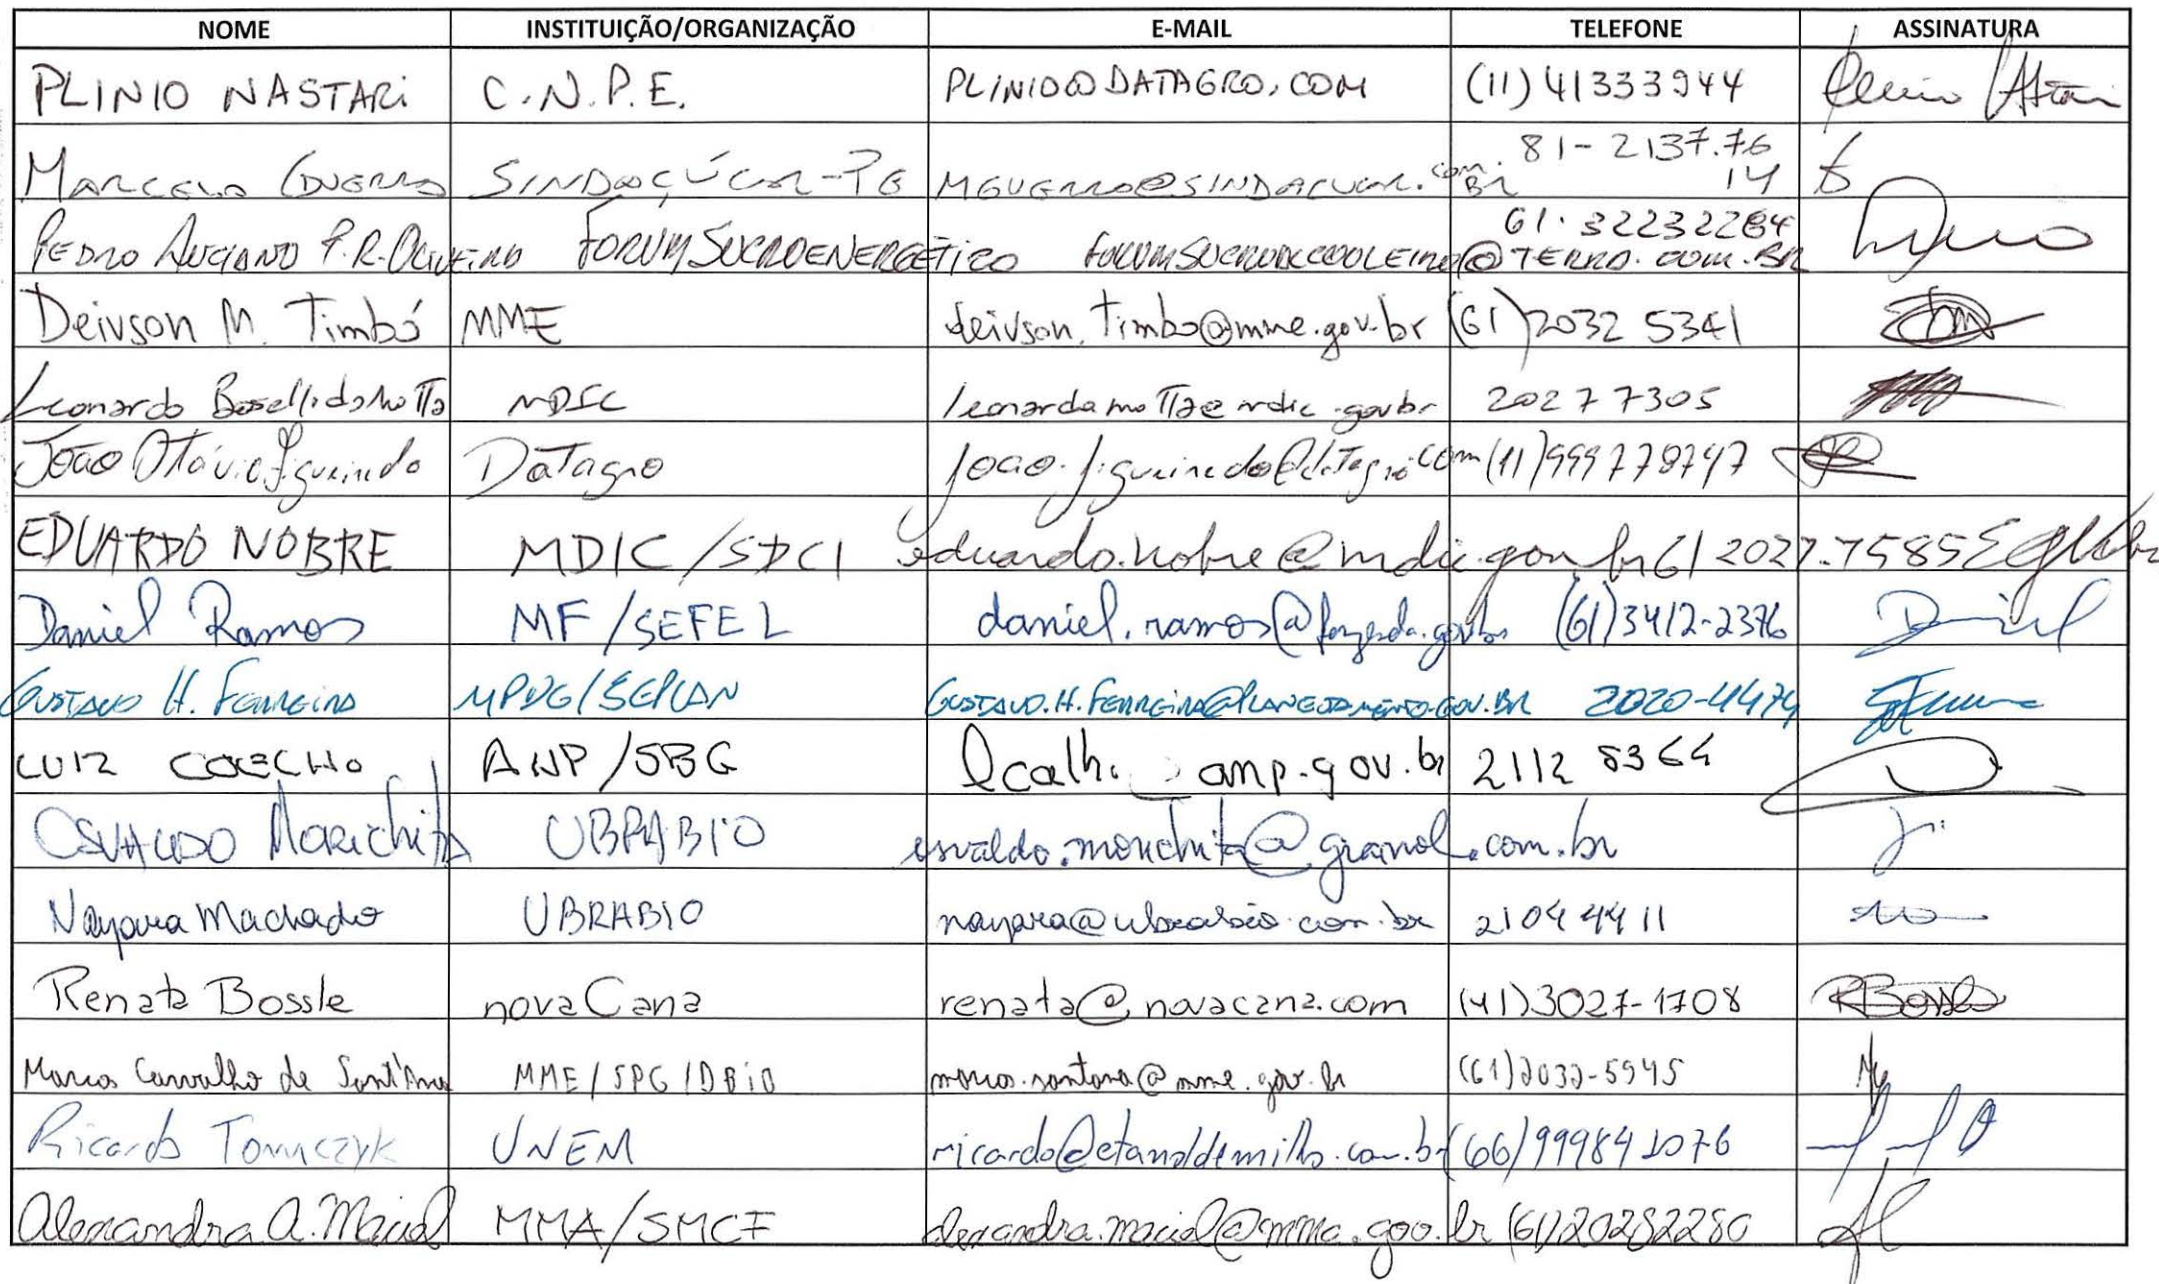 NOME INSTITUIÇÃO/ORGANIZAÇÃO E-MAIL TELEFONE ASSINATURA
PLINIO NASTARI C.N.P.E. PLINIO@DATAGRO.COM (11) 41333944
MARCELO GUERRA SINDAÇÚCAR-PE MGUERRA@SINDACUCAR.COM.BR 81-2137.7614
PEDRO LUCIANO P.R. OLIVEIRA FORUM SUCROENERGÉTICO FORUMSUCROALCOOLEIRO@TERRA.COM.BR 61.32232264
Deivson M. Timbó MME deivson.timbo@mme.gov.br (61) 2032 5341
Leonardo Boselli da Motta MDIC leonardo.motta@mdic.gov.br 2027 7305
João Otávio Figueiredo Datagro joao.figueiredo@datagro.com (11) 999778747
EDUARDO NOBRE MDIC/SDCI eduardo.nobre@mdic.gov.br 61 2027.7585
Daniel Ramos MF/SEFEL daniel.ramos@fazenda.gov.br (61)3412-2376 Daniel
GUSTAVO H. FERREIRA MPDG/SEPLAN GUSTAVO.H.FERREIRA@PLANEJAMENTO.GOV.BR 2020-4474
LUIZ COELHO ANP/SBG anp.gov.br 2112 8364
OSVALDO Morichita UBRABIO osvaldo.morichita@granol.com.br
Nayara Machado UBRABIO nayara@ubrabio.com.br 2104 4411
Renata Bossle novaCana renata@novacana.com (41)3027-1708 RBossle
Marcos Carvalho de Sant'Ana MME/SPG/DBIO marcos.santana@mme.gov.br (61)2032-5945
Ricardo Tomczyk UNEM ricardo@etanoldemilho.com.br (66) 99984 1076
Alexandra A. Maciel MMA/SMCF alexandra.maciel@mma.gov.br (61)20282280